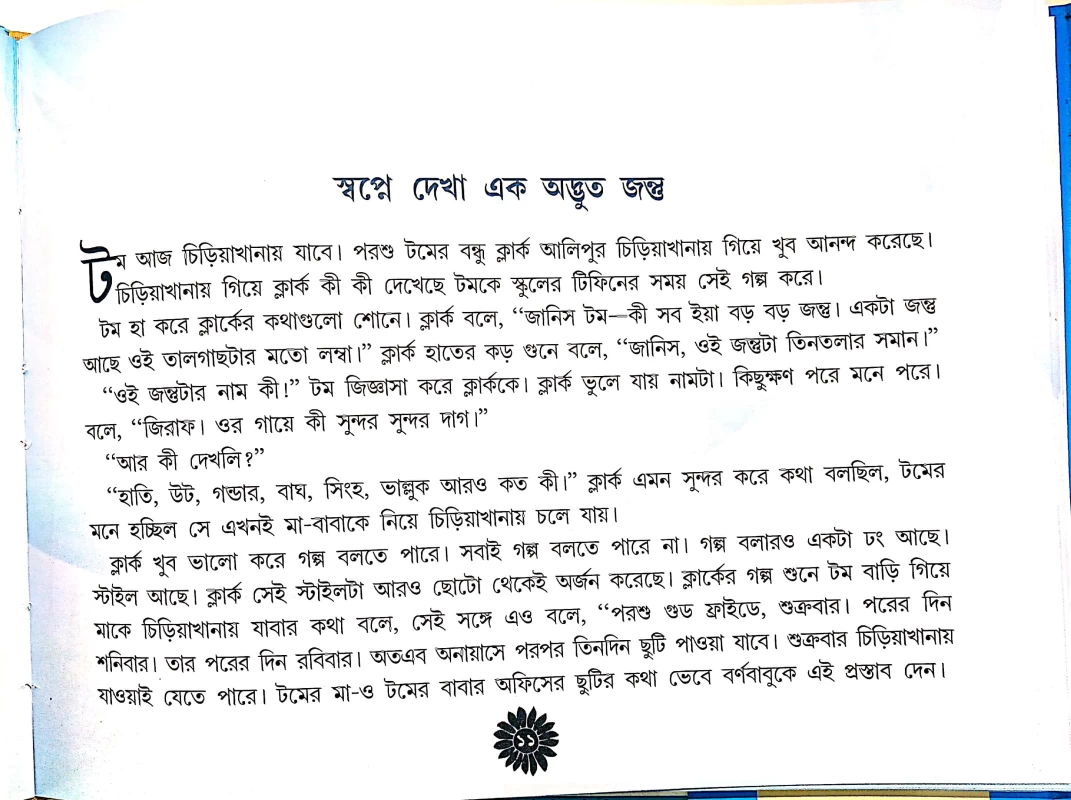 স্বপ্নে দেখা এক অদ্ভুত জন্তু
টম আজ চিড়িয়াখানায় যাবে। পরশু টমের বন্ধু ক্লার্ক আলিপুর চিড়িয়াখানায় গিয়ে খুব আনন্দ করেছে।
চিড়িয়াখানায় গিয়ে ক্লার্ক কী কী দেখেছে টমকে স্কুলের টিফিনের সময় সেই গল্প করে।
টম হা করে ক্লার্কের কথাগুলো শোনে। ক্লার্ক বলে, “জানিস টম—কী সব ইয়া বড় বড় জন্তু। একটা জন্তু
আছে ওই তালগাছটার মতো লম্বা।” ক্লার্ক হাতের কড় গুনে বলে, “জানিস, ওই জন্তুটা তিনতলার সমান।”
“ওই জন্তুটার নাম কী!” টম জিজ্ঞাসা করে ক্লার্ককে। ক্লার্ক ভুলে যায় নামটা। কিছুক্ষণ পরে মনে পরে।
বলে, “জিরাফ। ওর গায়ে কী সুন্দর সুন্দর দাগ।”
“আর কী দেখলি?”
“হাতি, উট, গন্ডার, বাঘ, সিংহ, ভাল্লুক আরও কত কী।” ক্লার্ক এমন সুন্দর করে কথা বলছিল, টমের
মনে হচ্ছিল সে এখনই মা-বাবাকে নিয়ে চিড়িয়াখানায় চলে যায়।
ক্লার্ক খুব ভালো করে গল্প বলতে পারে। সবাই গল্প বলতে পারে না। গল্প বলারও একটা ঢং আছে।
স্টাইল আছে। ক্লার্ক সেই স্টাইলটা আরও ছোটো থেকেই অর্জন করেছে। ক্লার্কের গল্প শুনে টম বাড়ি গিয়ে
মাকে চিড়িয়াখানায় যাবার কথা বলে, সেই সঙ্গে এও বলে, “পরশু গুড ফ্রাইডে, শুক্রবার। পরের দিন
শনিবার। তার পরের দিন রবিবার। অতএব অনায়াসে পরপর তিনদিন ছুটি পাওয়া যাবে। শুক্রবার চিড়িয়াখানায়
যাওয়াই যেতে পারে। টমের মা-ও টমের বাবার অফিসের ছুটির কথা ভেবে বর্ণবাবুকে এই প্রস্তাব দেন।
১১